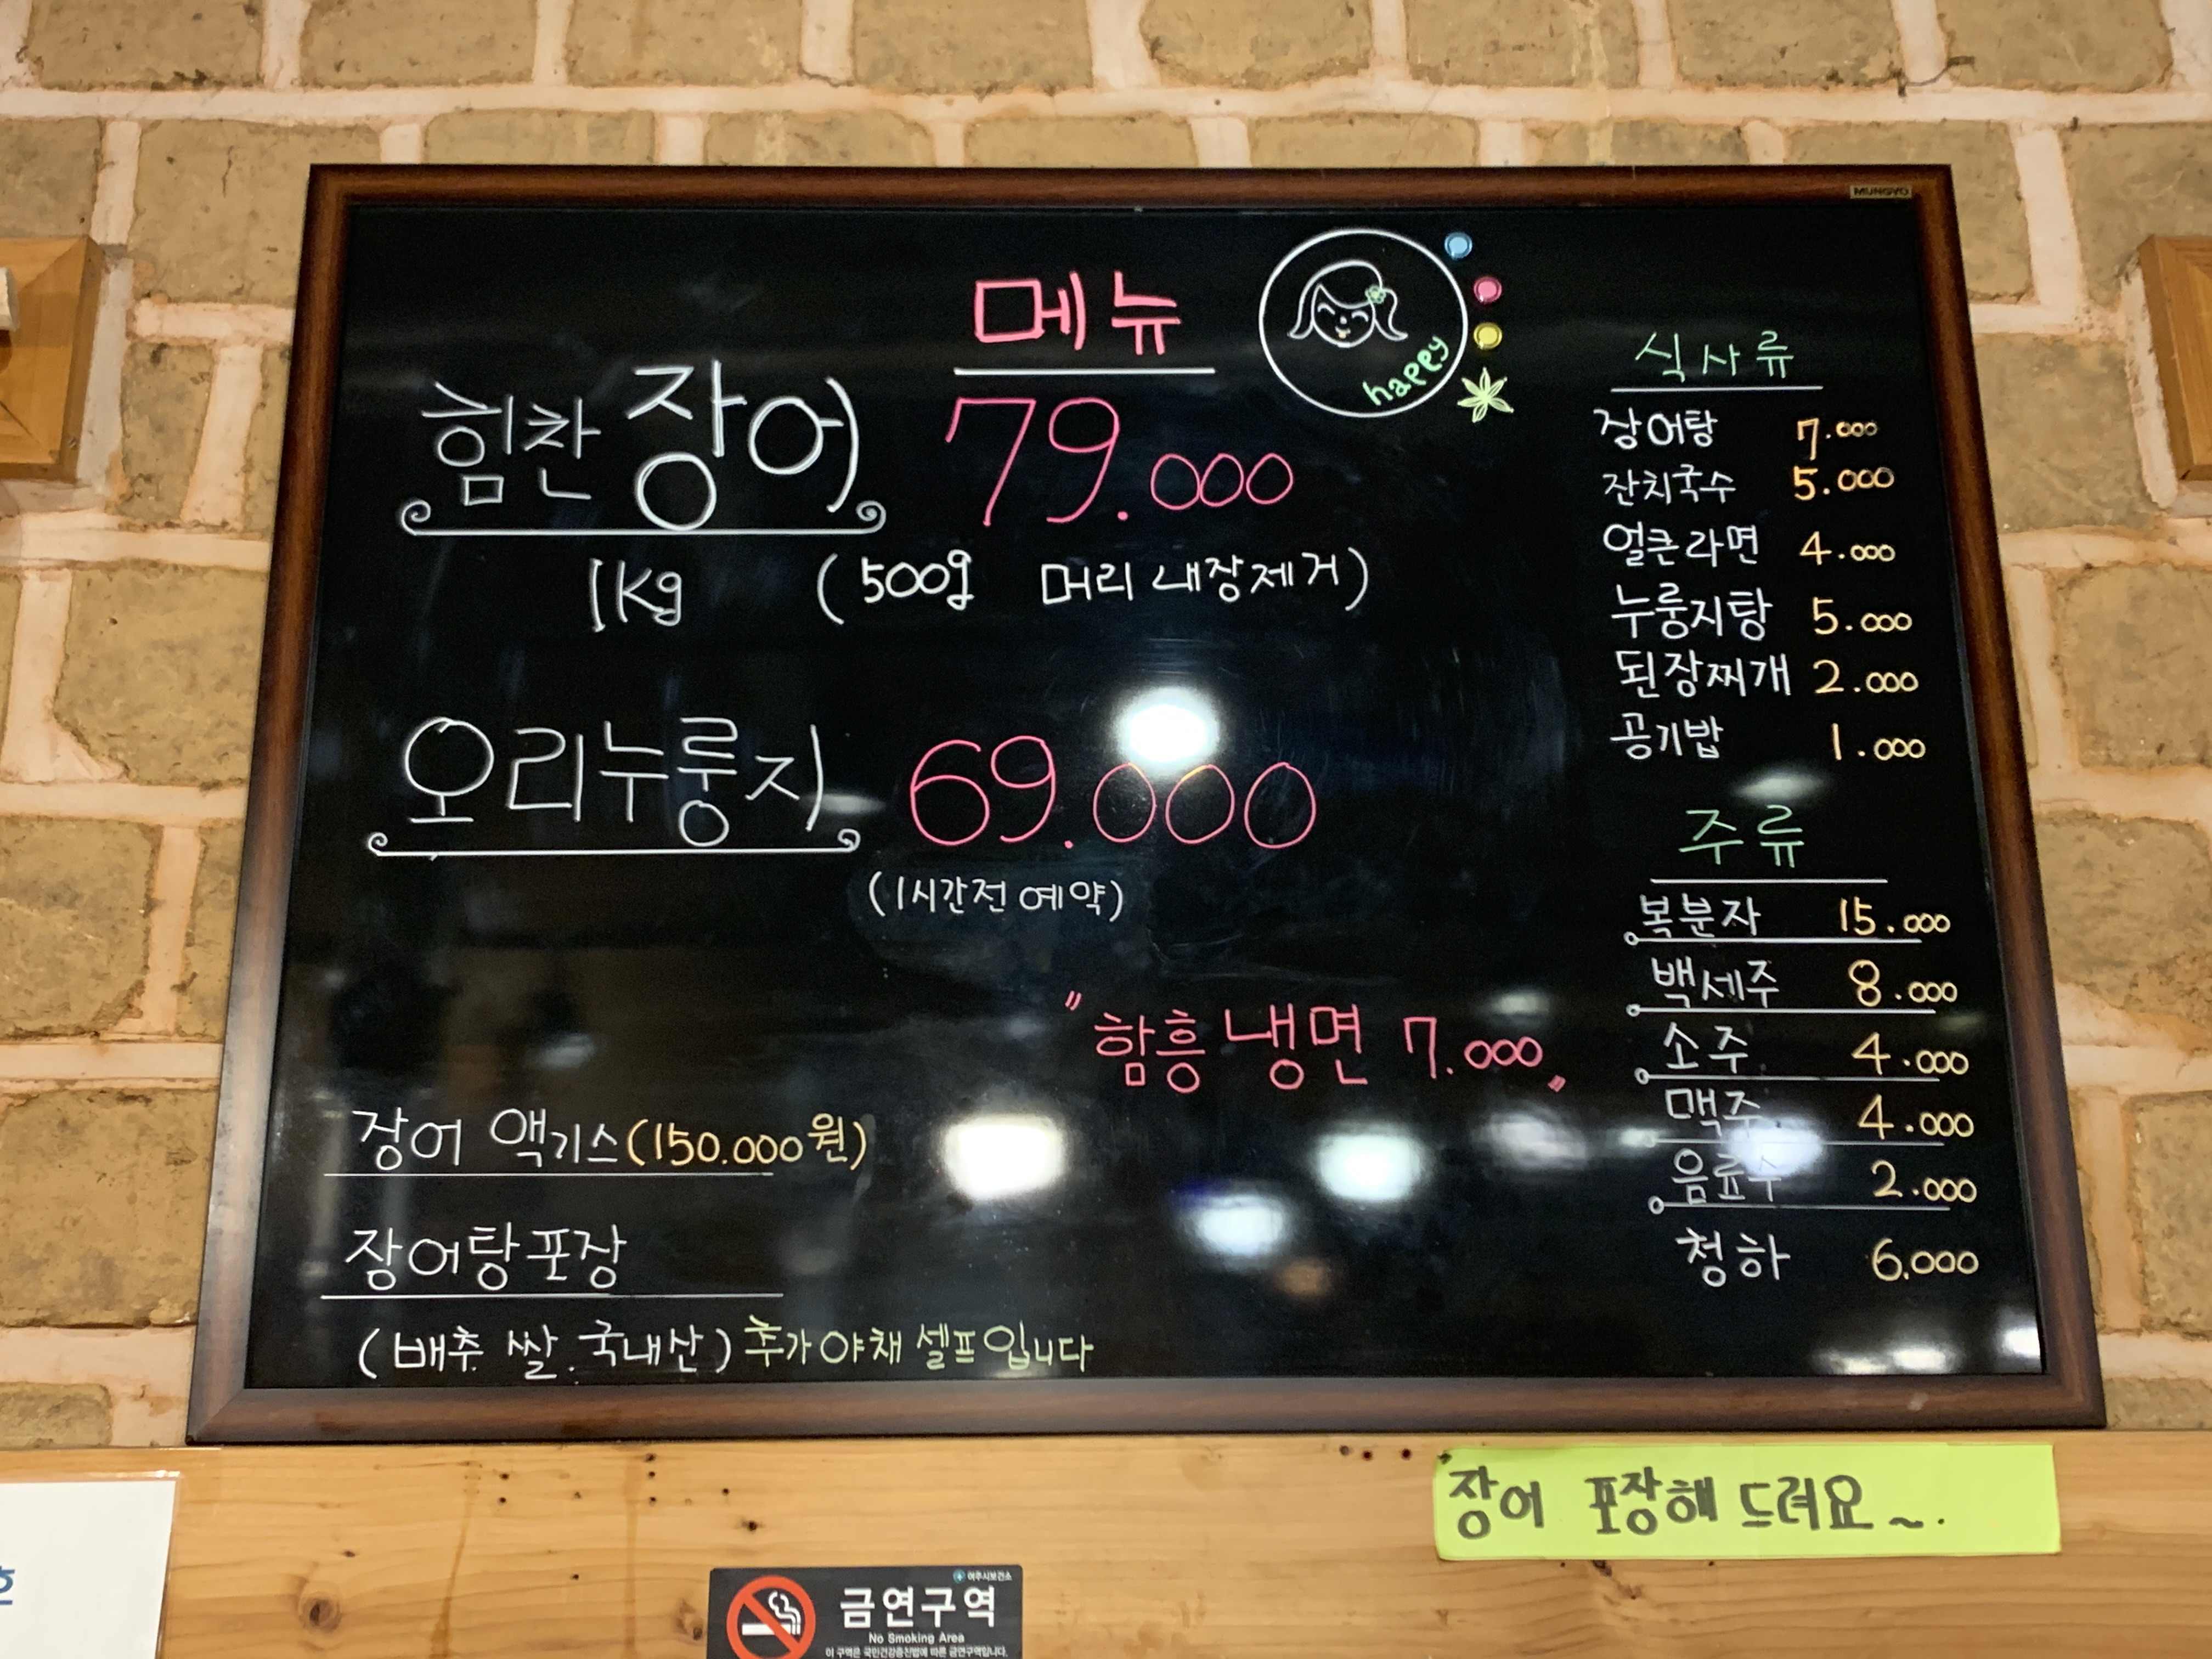 MUNGYO
메뉴
happy
힘찬 장어 79.000
1kg (500g 머리 내장제거)
오리누룽지 69.000
(1시간전 예약)
"함흥냉면 7.000"
장어 액기스(150.000원)
장어탕포장
(배추 쌀. 국내산) 추가야채 셀프입니다
식사류
장어탕 7.000
잔치국수 5.000
얼큰라면 4.000
누룽지탕 5.000
된장찌개 2.000
공기밥 1.000
주류
복분자 15.000
백세주 8.000
소주 4.000
맥주 4.000
음료수 2.000
청하 6.000
장어 포장해 드려요~.
여주시보건소
금연구역
No Smoking Area
이 구역은 국민건강증진법에 따른 금연구역입니다.